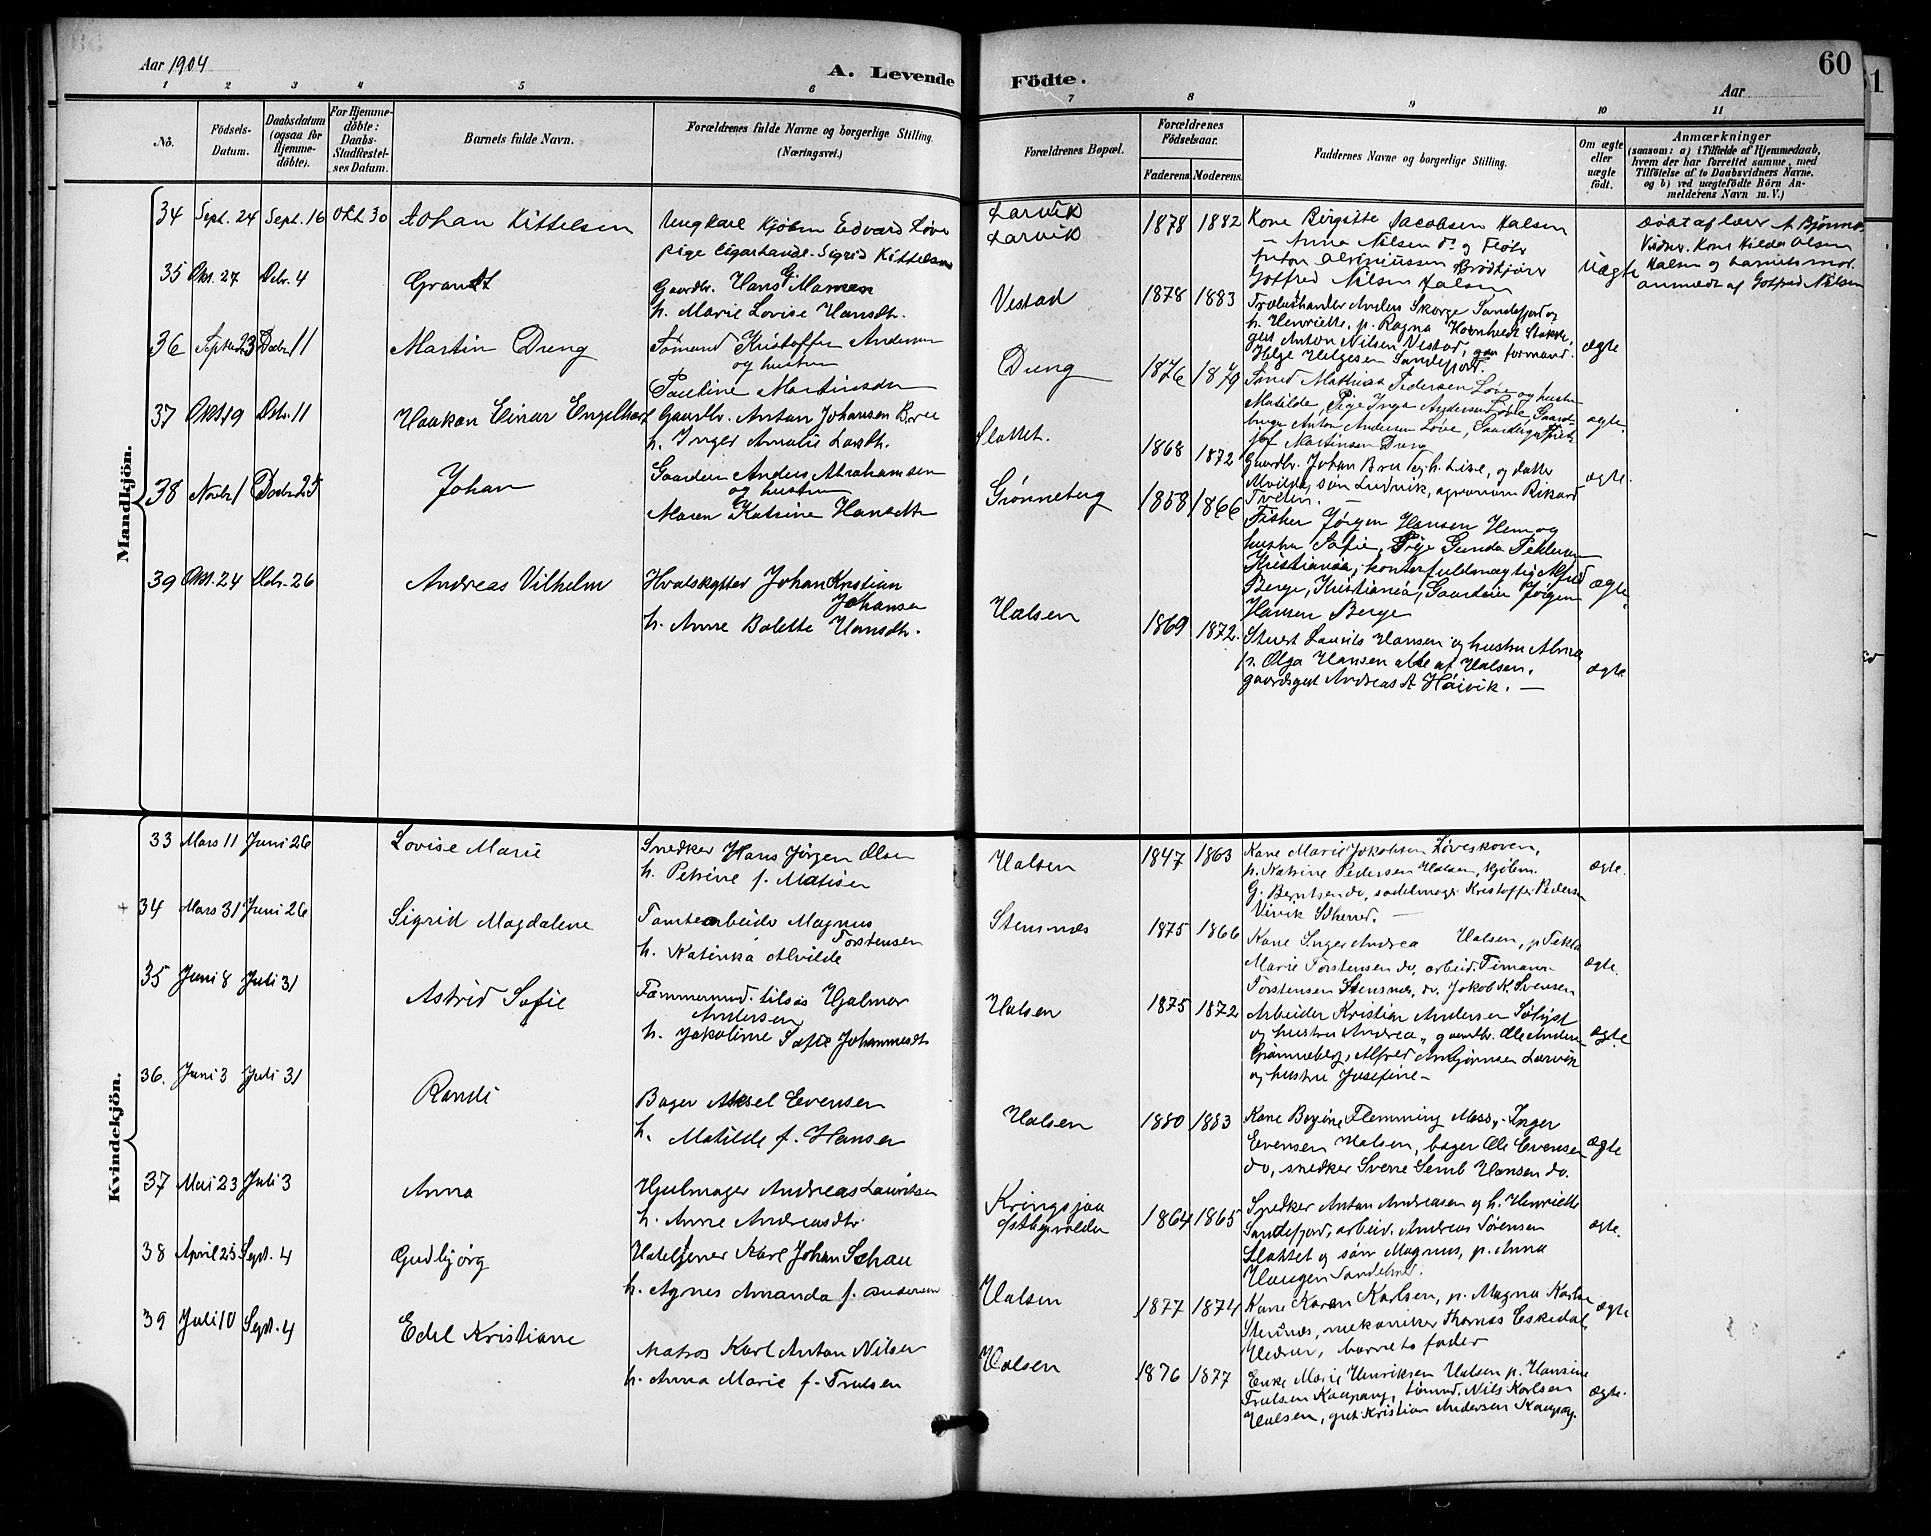 Aar 1904
A. Levende
Födte.
60
Aar
1 2 3 4 5 6 7 8 9 10 11
No.
Födsels-
Datum.
Daabsdatum
(ogsaa for
Hjemme-
döbte).
For Hjemme-
döbte:
Daabs-
Stadfæstel-
ses Datum.
Barnets fulde Navn.
Forældrenes fulde Navne og borgerlige Stilling.
(Næringsvei.)
Forældrenes Bopæl.
Forældrenes
Födselsaar.
Faderens. Moderens.
Faddernes Navne og borgerlige Stilling.
Om ægte
eller
uægte
födt.
Anmærkninger
(saasom: a) i Tilfælde af Hjemmedaab,
hvem der har forrettet samme, med
Tilföielse af to Daabsvidners Navne,
og b) ved uægtefödte Börn An-
melderens Navn m. V.)
Mandkjön.
34 Sept. 24 Sept. 16 Okt. 30
Johan Kittelsen
Ungkarl Kjøbm Edvard Løve
pige Cigarhandl. Sigrid Kittelsen
Larvik
Larvik
1878 1882
Kone Birgitte Jacobsen Halsen
— Anna Nilsen do og
Gotfred Nilsen Halsen
Uægte
Døbt af lærer A. Bjønnes
Vidner. Kone Hilda Olsen
Halsen og barnets mor.
anmeldt af Gotfred Nilsen
35 Okt. 27 Decbr. 4
Grandt
Gaardbr. Hans G. Mamen
h. Marie Lovise Hansdtr.
Vestad
1878 1883
Trælasthandler Anders Skorge Sandefjord og
h. Henriette, p. Ragna Hornhedt Stokke,
gut Anton Nilsen Vestad, formand
Helge Helgesen Sandefjord.
ægte
36 Septbr. 23 Decbr. 11
Martin Dung
Sømand Kristoffer Andersen
og hustru
Pauline Martinsdtr
Dung
1876 1879
Smed Mathias Pedersen Løve og hustru
Matilde, Pige Inga Andersen Løve, Gaard-
bruger Anton Andersen Løve,
Martinsen Dung
ægte.
37 Okt. 19 Decbr. 11
Haakon Einar Engelhart
Gaardbr. Anton Johansen Bru
h. Inger Amalie Larsdtr.
Slottet.
1868 1872
Gaardbr. Johan Bru og h. Lise, og datter
Alvilde, søn Ludvik, agronom Rikard
Tveten. —
ægte.
38 Novbr. 1 Decbr. 25
Johan
Gaardeier Anders Abrahamsen
og hustru
Maren Katrine Hansdtr
Grønneberg
1858 1866
Fisker Jørgen Hansen Hem og
hustru Sofie, Pige Gunda Pedersen
Kristiania, kontorfuldmægtig Alfred
Berge, Kristiania, Gaardeier Jørgen
Hansen Berge
ægte.
39 Okt. 24 Decbr. 26
Andreas Vilhelm
Hvalskytter Johan Kristian
Johansen
h. Anne Bolette Hansdtr.
Halsen
1869 1872.
Stuert Laurits Hansen og hustru Alma
p. Olga Hansen alle af Halsen.
gaardsgut Andreas A Høivik. —
ægte.
Kvindekjön.
33 Mars 11 Juni 26
Lovise Marie
Snedker Hans Jørgen Olsen
h. Petrine f. Matisen
Halsen
1847 1863
Kone Marie Jakobsen Løveskoven,
p. Katrine Pedersen Halsen, kjøbm.
G. Berntsen do, sadelmager Kristoffer Pedersen
Virvik Skherred. —
ægte.
34 Mars 31 Juni 26
Sigrid Magdalene
Tomtearbeider Magnus
Torstensen
h. Katinka Alvilde
Stensnæs
1875 1866
Kone Inger Andrea Halsen, p Tekla
Marie Torstensen do, arbeid. Timann
Torstensen Stensnæs, do. Jokob K. Svensen
ægte.
35 Juni 8 Juli 31
Astrid Sofie
Tømmermd. tilsjøs Hjalmar
Andersen
h. Jakobine Sofie Johannesdtr
Halsen
1875 1872
Arbeider Kristian Andersen Sølyst
og hustru Andrea, gaardbr. Ole Andersen
Grønneberg, Alfred Larvik
og hustru Josefine —
ægte
36. Juni 3 Juli 31
Randi
Bager Aksel Evensen
h. Matilde f. Hansen
Halsen
1880 1883
Kone Bergine Flemming Moss, Inger
Evensen Halsen, bager Ole Evensen
do, snedker Sverre Semb Hansen do.
ægte
37 Mai 23 Juli 3
Anna
Hjulmager Andreas Lauritsen
h. Anne Andreasdtr.
Kringsjaa
Østbyvolden
1864 1865
Snedker Anton Andreasen og h. Henriette
Sandefjord, arbeid. Andreas Sørensen
Slottet og søn Magnus, p. Anna
Haugen Sandeherred.
ægte.
38 April 25 Sept. 4
Gudbjørg
Hoteltjener Karl Johan Schau
h. Agnes Amanda f. Andersen
Halsen
1877 1874
Kone Karen Karlsen, p. Magna Karlsen
Stensnæs, mekaniker Thomas Eskedal
Hedrum, barnets fader
ægte
39 Juli 10 Sept. 4
Edel Kristiane
Matros Karl Anton Nilsen
h. Anna Marie f. Trulsen
Halsen
1876 1877
Enke Marie Henriksen Halsen p. Hansine
Trulsen Kaupang, sømnd. Nils Karlsen
Halsen, gut Kristian Andersen Kaupang.
ægte.